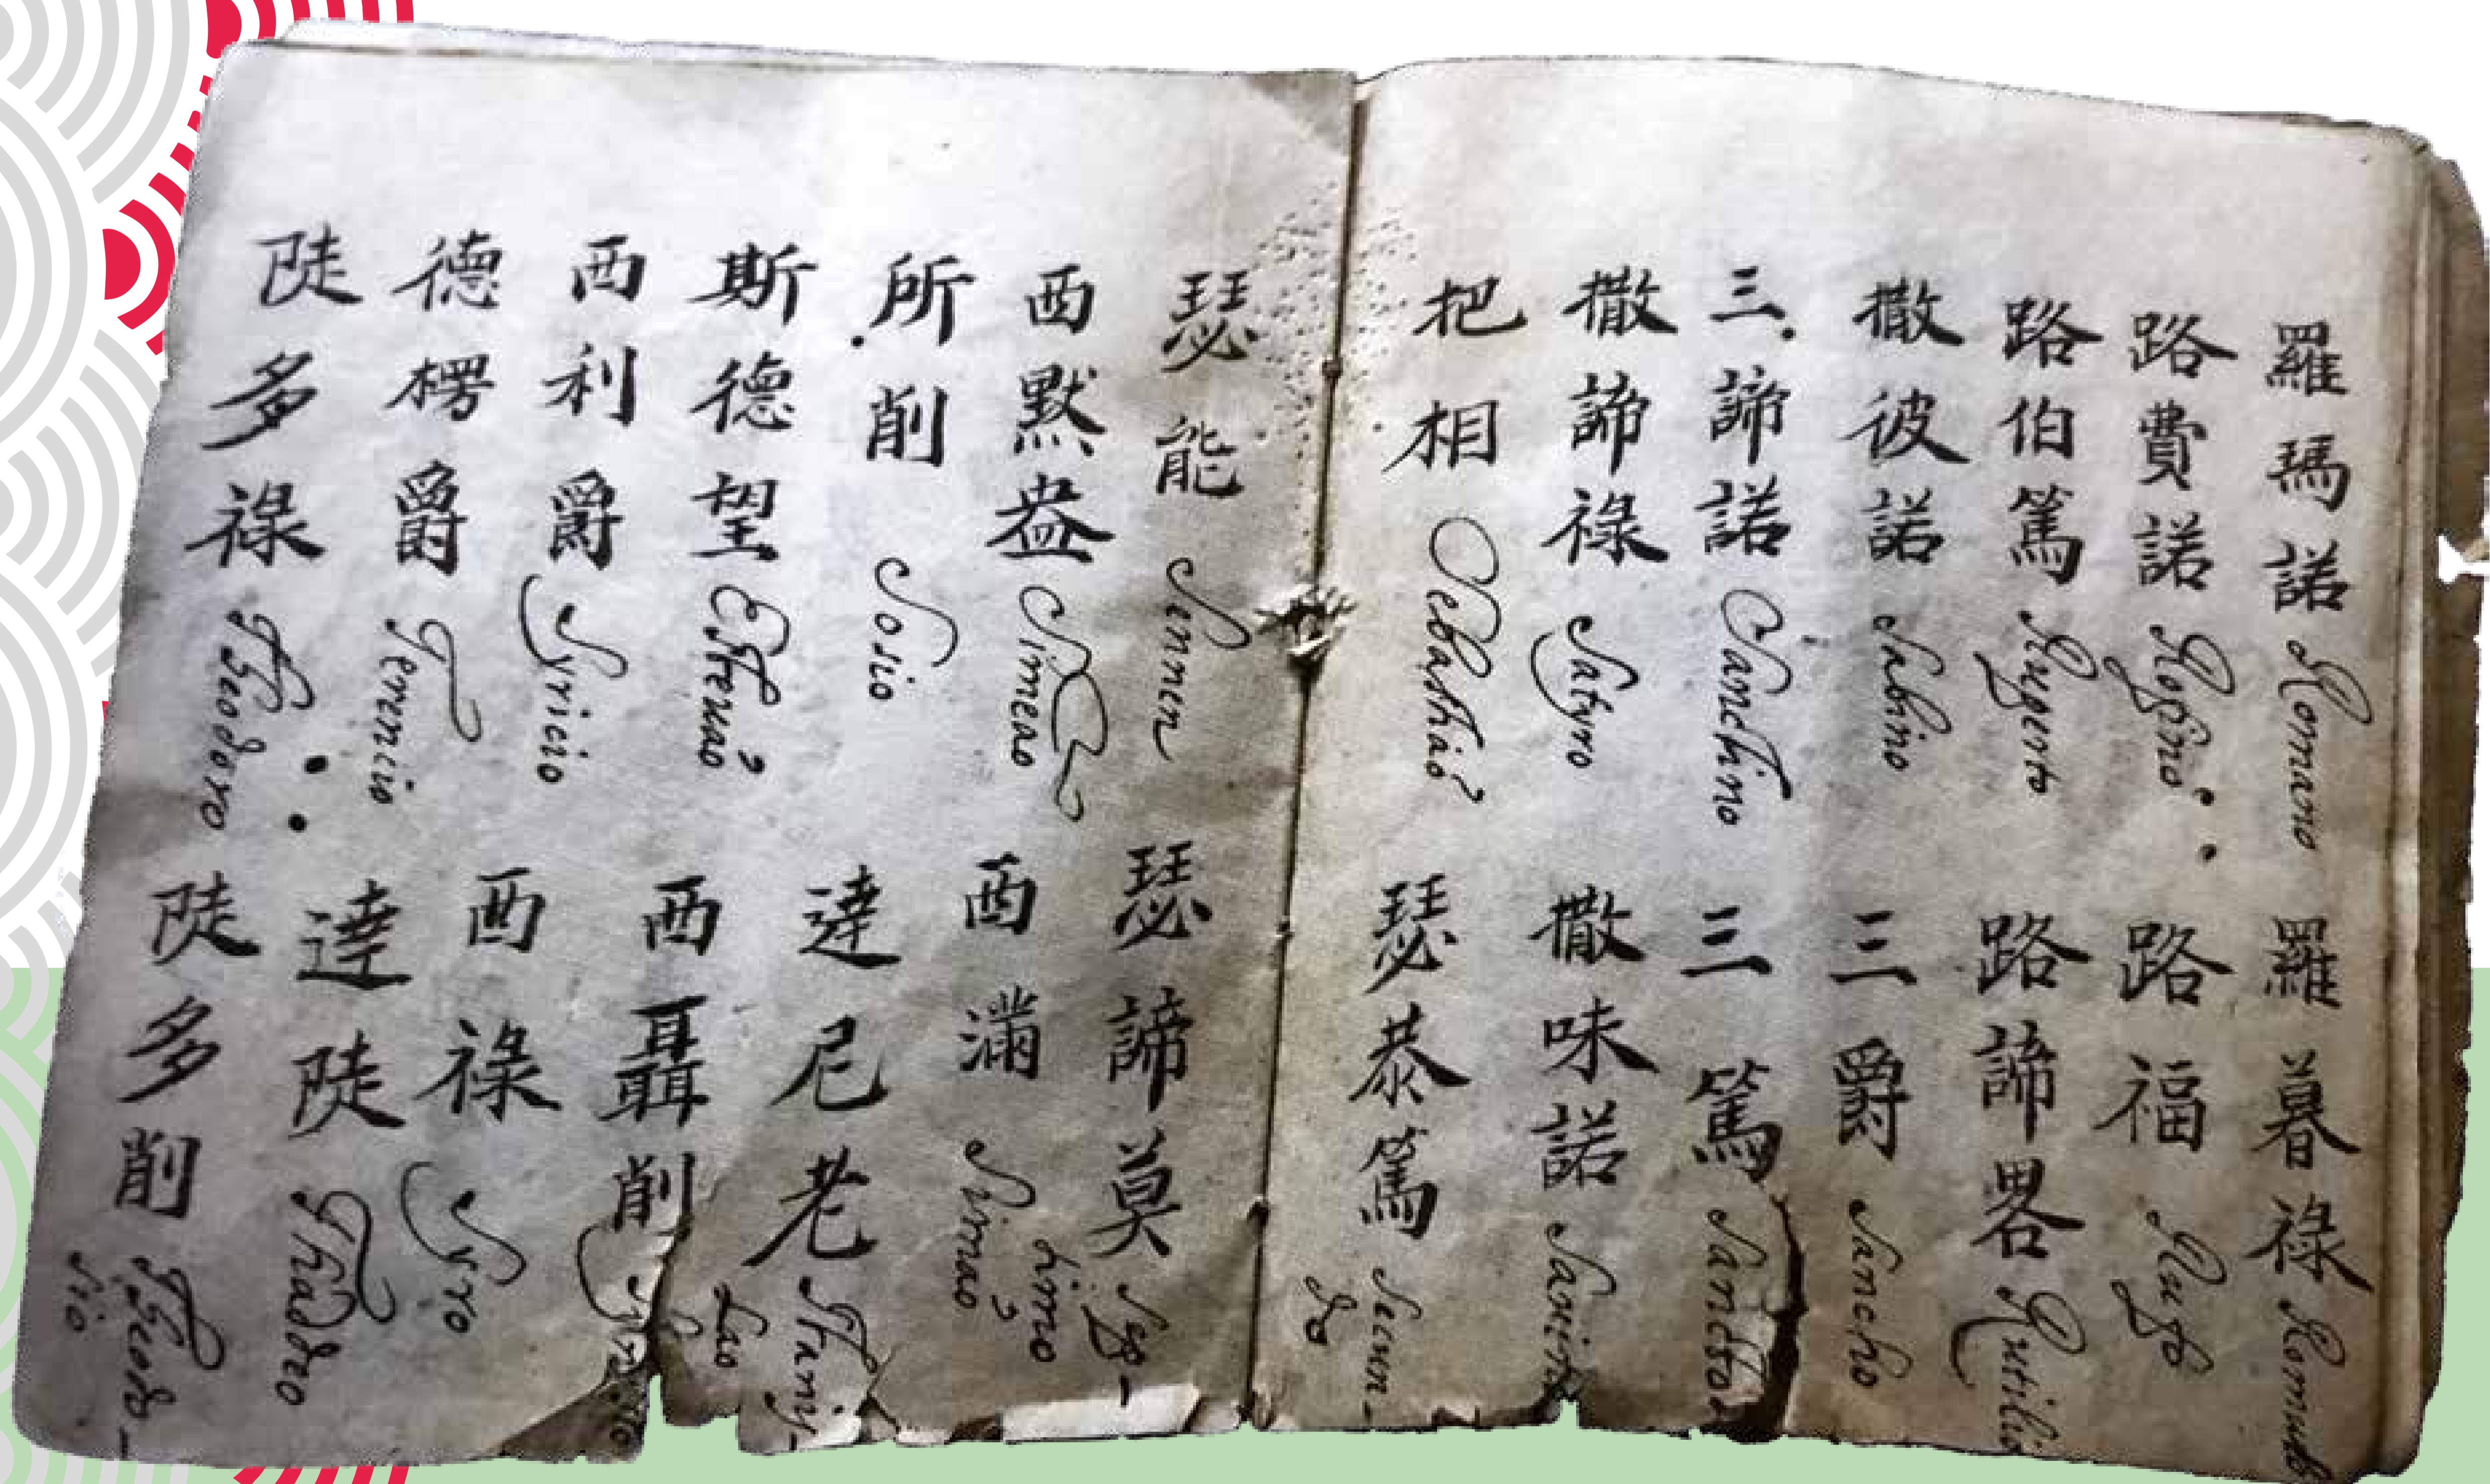 羅瑪諾 Romano 羅暮祿
路費諾 Rofino 路福 Rufo
路伯篤 Ruperto 路諦畧 Rutilio
撒彼諾 Sabino 三爵 Sancho
三諦諾 Sanctino 三篤
撒諦祿 Satyro 撒味諾
把相 Sebasthaõ 瑟恭篤 Secun-
do
瑟能 Sennen 瑟諦莫 Sep-
timo
西默盎 Simeao 西滿 Simaõ
所削 Sosio 達尼老 Stanis-
Lao
斯德望 Estevaõ 西聶削
西利爵 Syricio 西祿 Syro
德楞爵 Terencio 達陡 Thadeo
陡多祿 Theodoro 陡多削 Theodo-
sio